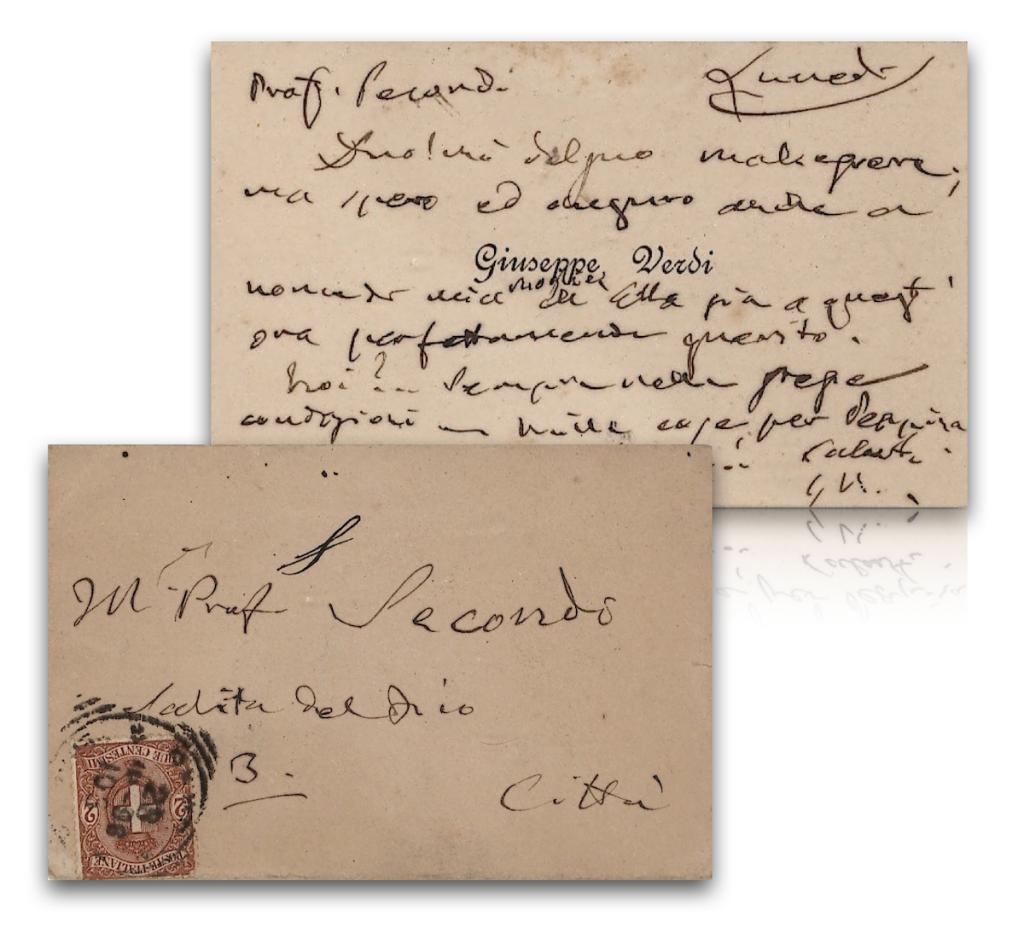 Prof. Secondi Lunedi
Duolmi del suo male
ma spero ed auguro anche a
Giuseppe Verdi
nome di mia moglie
Ella sia a quest'
ora perfettamente guarito.
Noi sempre nelle
condizioni mille cose per
Saluti
G.V.
Prof Secondi
Salita del Dio
3.
Città
POSTE ITALIANE
2 2
DUE CENTESIMI